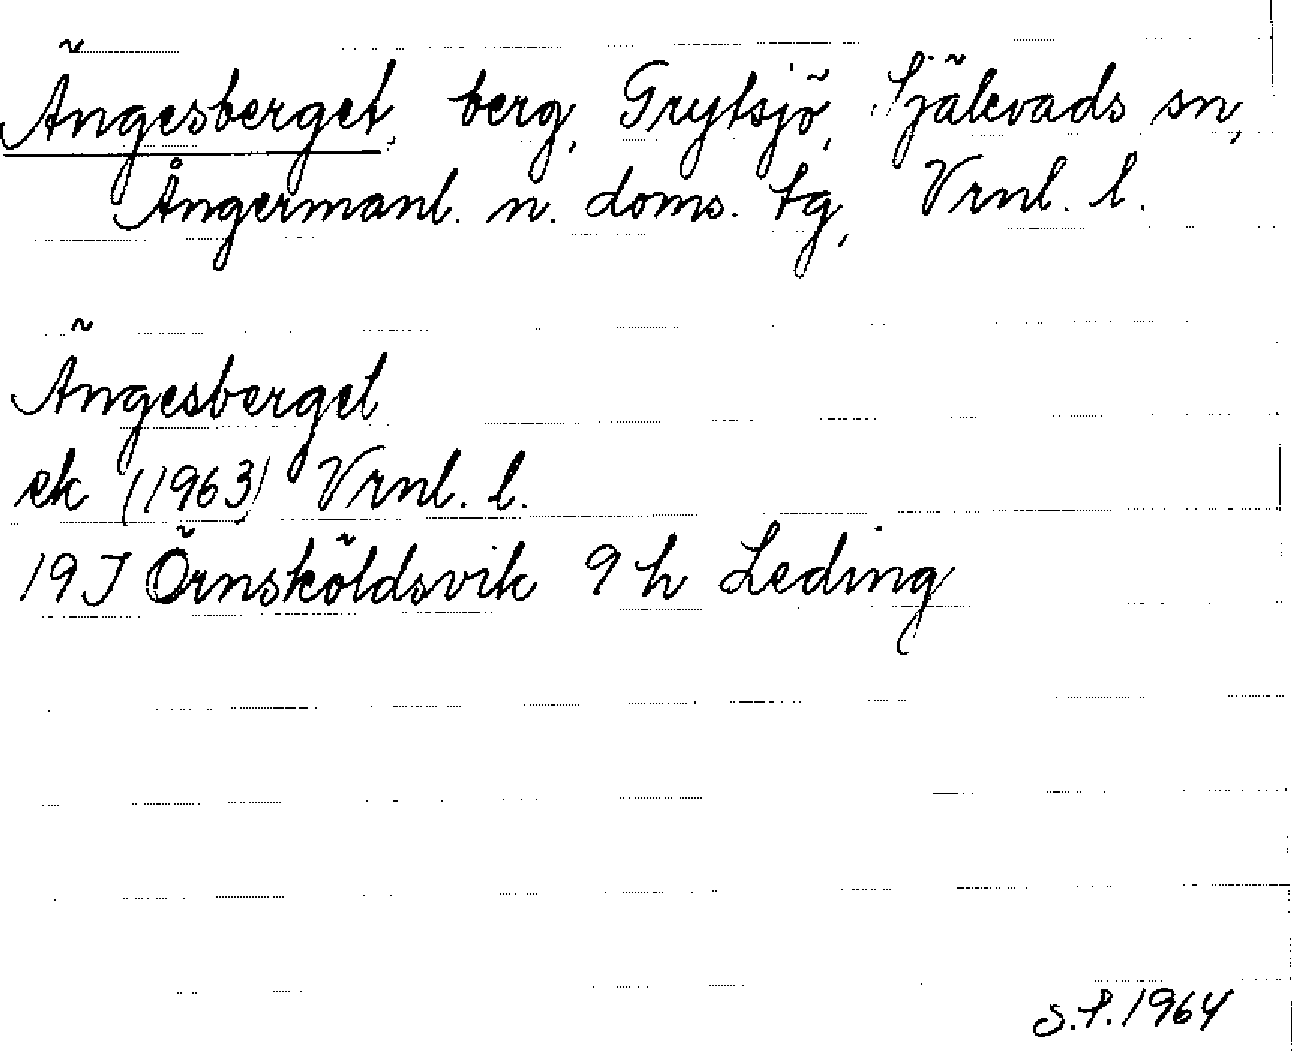 Ängesberget, berg, Grytsjö, Själevads sn,
Ångermanl. n. doms. tg, Vrnl. l.
Ängesberget
ek (1963) Vrnl. l.
19J Örnsköldsvik 9h Leding
S.P. 1964